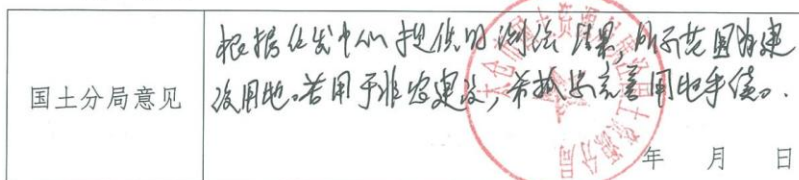 国土分局意见
根据信息中心提供的测绘结果,所示范围为建
设用地。若用于非农建设,需抓紧完善用地手续。
年 月 日